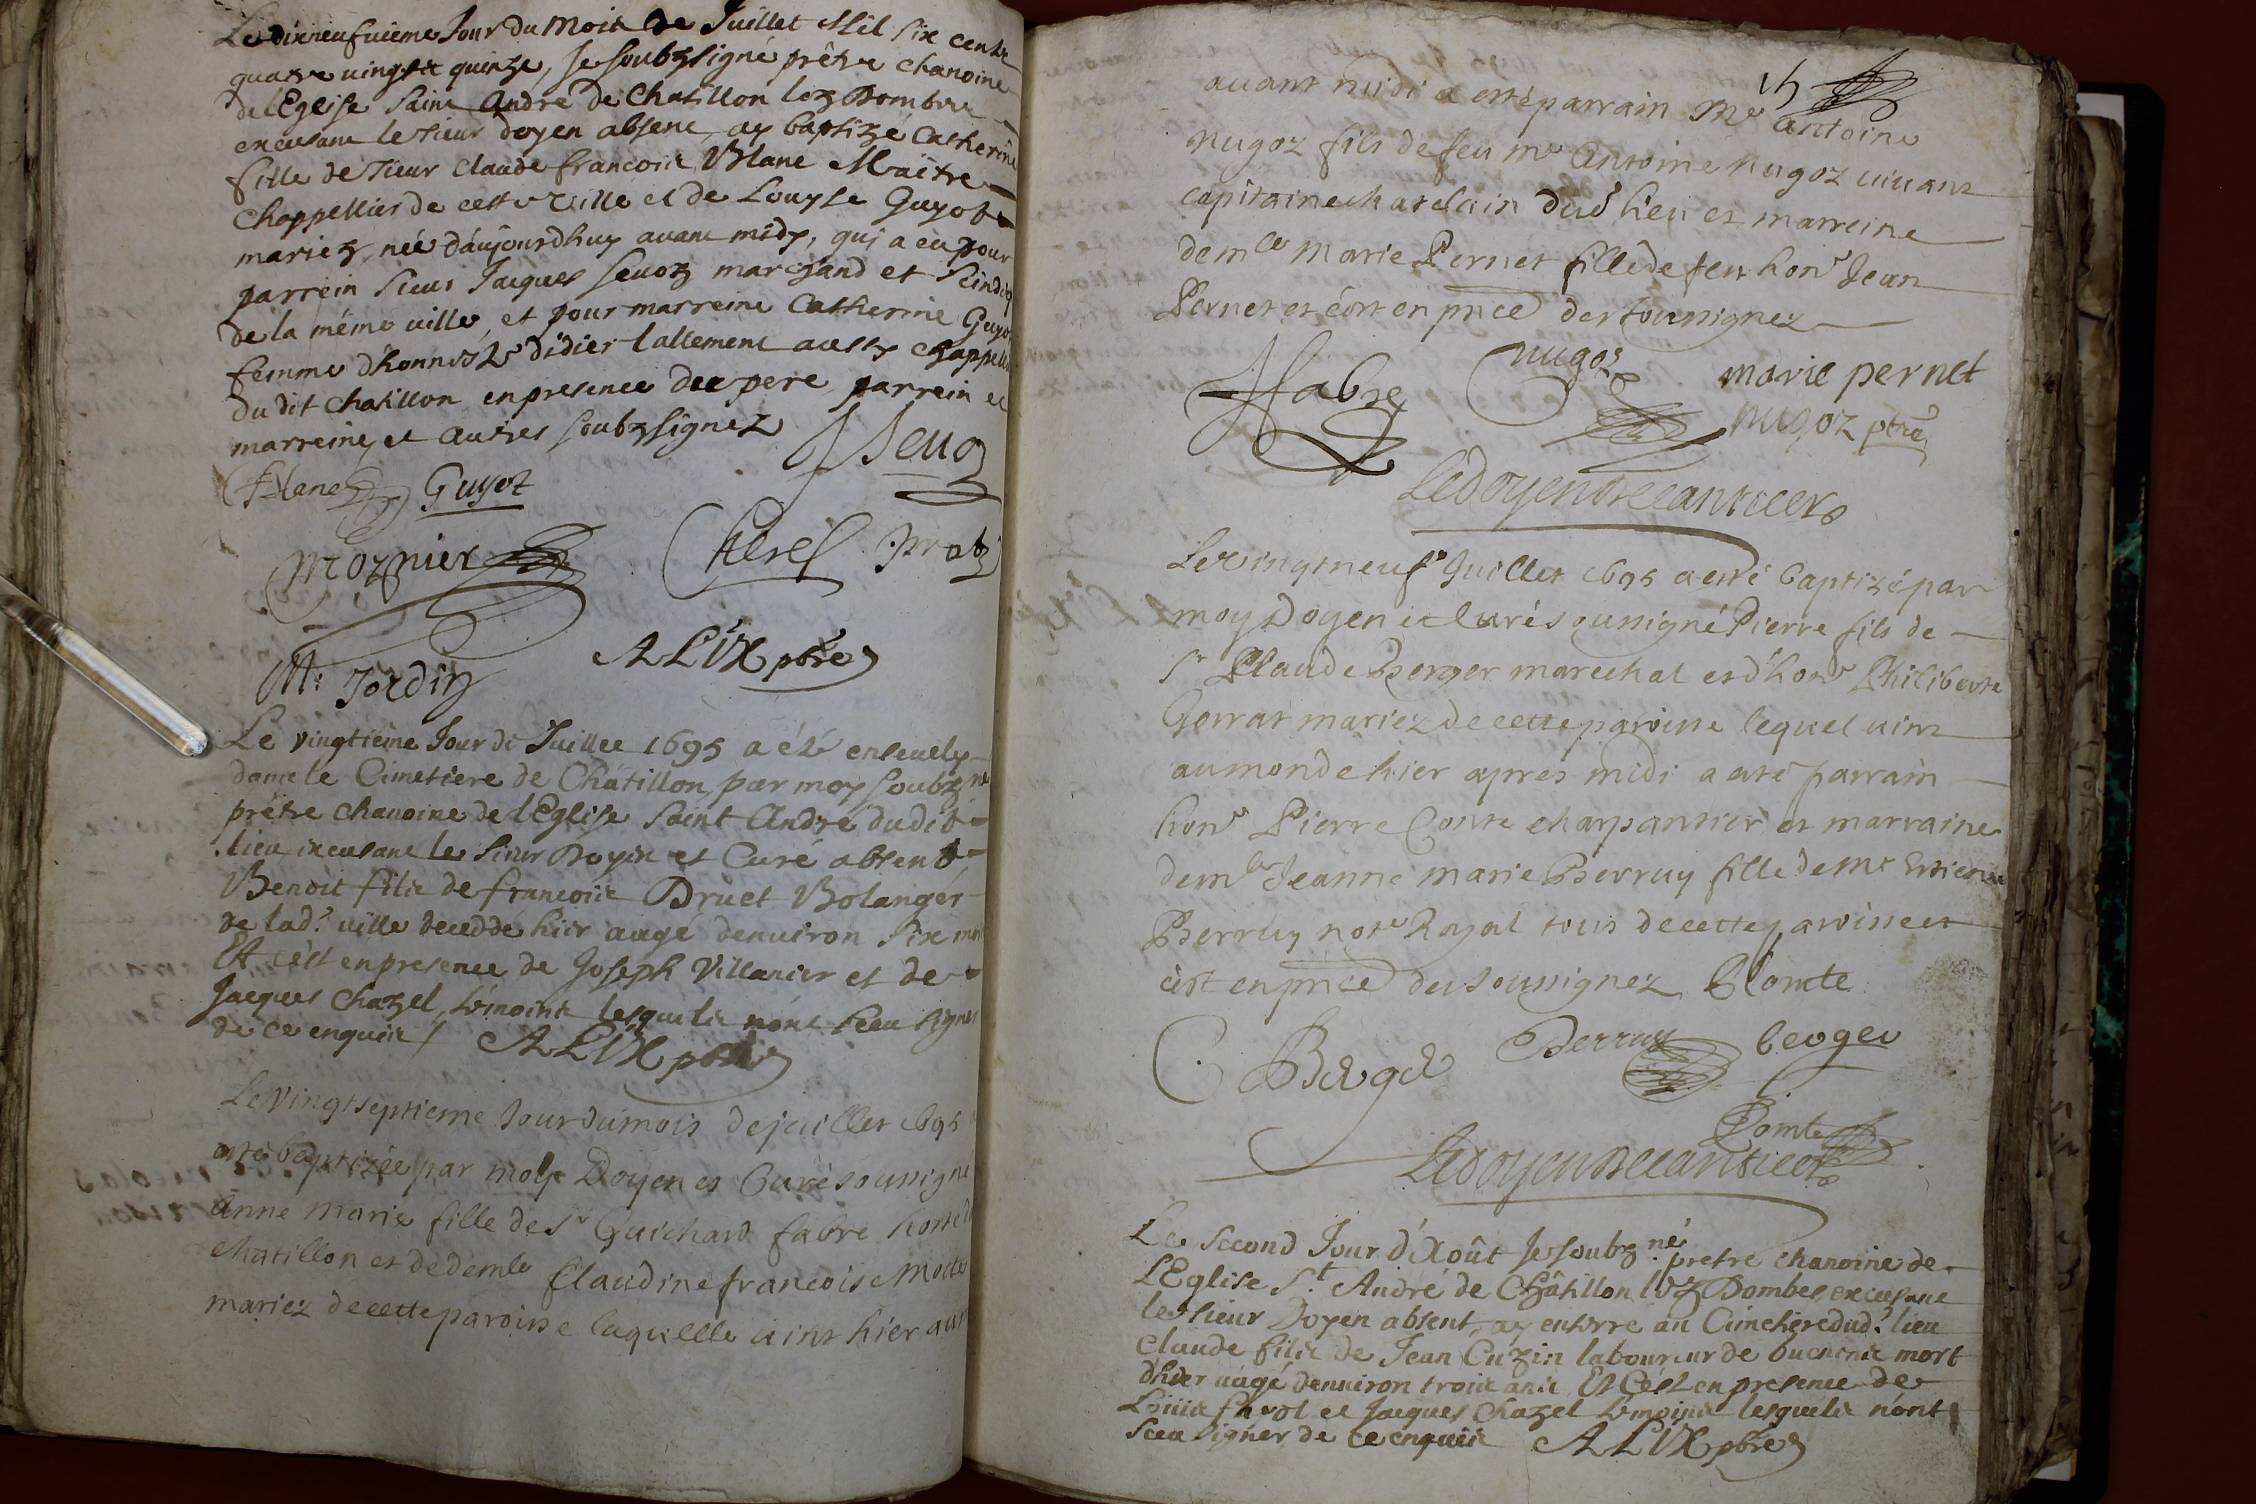 Le dixneufuieme Jour du mois de Juillet Mil six cents
quatre uingtz quinze, Je soubzsigné prêtre chanoine
de lEglise Saint André de Chatillon lez Dombes
excusant le sieur doyen absent, ay baptizé Catherine
fille de sieur Claude francois Blanc Maître
Chappellier de cette ville et de Louyse Guyot
mariez, née daujourdhuy auant midy, qui a eu pour
parrein sieur Jacques Seuoz marchand et Scindiq
de la même uille, et pour marreine Catherine Guyot
femme d'honneste didier lallement aussy chappell
du dit Chatillon en presence des pere parrein et
marreine, et autres soubzsignez
Blanc Guyot JSeuoz
mozniez Cherel Prost
M: Jordin ALIX pbre
Le vingtieme Jour de Juillet 1695 a été enseuely
dans le Cimetiere de Châtillon, par moy soubzné
prêtre chanoine de lEglise Saint André dudit
lieu excusant le sieur Doyen et Curé absent
Benoit filz de francois Druet Bolanger
de lad.e uille decedde hier aagé denuiron six mois
Et cést en presence de Joseph Villanier et de
Jacques Chazel témoins lesquelz nónt sceu signer
de ce enquis / ALIX pbre
Le vingtseptieme Jour du mois de juillet 1695 a
esté baptizée par moy Doyen et Curé soussigné
Anne Marie fille de Sr Guichard fabre hoste de
Chatillon et de demle Claudine francoise
mariez de cette paroisse laquelle uint hier au
15
auant midi a esté parrain Mre antoine
nugoz fils de feu mre Antoine nugoz uiuant
capitaine chatelain dud lieu et marreine
demle Marie Pernet fille de feu honr Jean
Pernet et cést en pnce des soussignez
fabre nugoz marie pernet
nugoz ptre
Ledoyen
Le vingtneufe Juillet 1695 a esté baptizé par
moy Doyen et Curé soussigné Pierre fils de
Sr Claude Berger marechal et d'hone Philiberte
Gorrat mariez de cette paroisse lequel uint
au monde hier apres midi a esté parrain
honr Pierre Comte charpantier et marraine
demle Jeanne marie Perruy fille de Mr Estienne
Perruy note Royal tous de cette paroisse et
cést en pnce des soussignez PComte
C Berge Perruy berger
Comte
Ledoyen
Le second Jour d'Août Je soubzné pretre chanoine de
LEglise St. André de Châtillon lez Dombes, excusant
le sieur Doyen absent, ay enterré au Cimetiere dud.t lieu
Claude filz de Jean Cuzin laboureur de mort
dhier aagé denuiron trois ans. Et Cést en presence de
Louis et Jacques Chazel témoins lesquelz nónt
sceu signer de ce enquis ALIX pbre